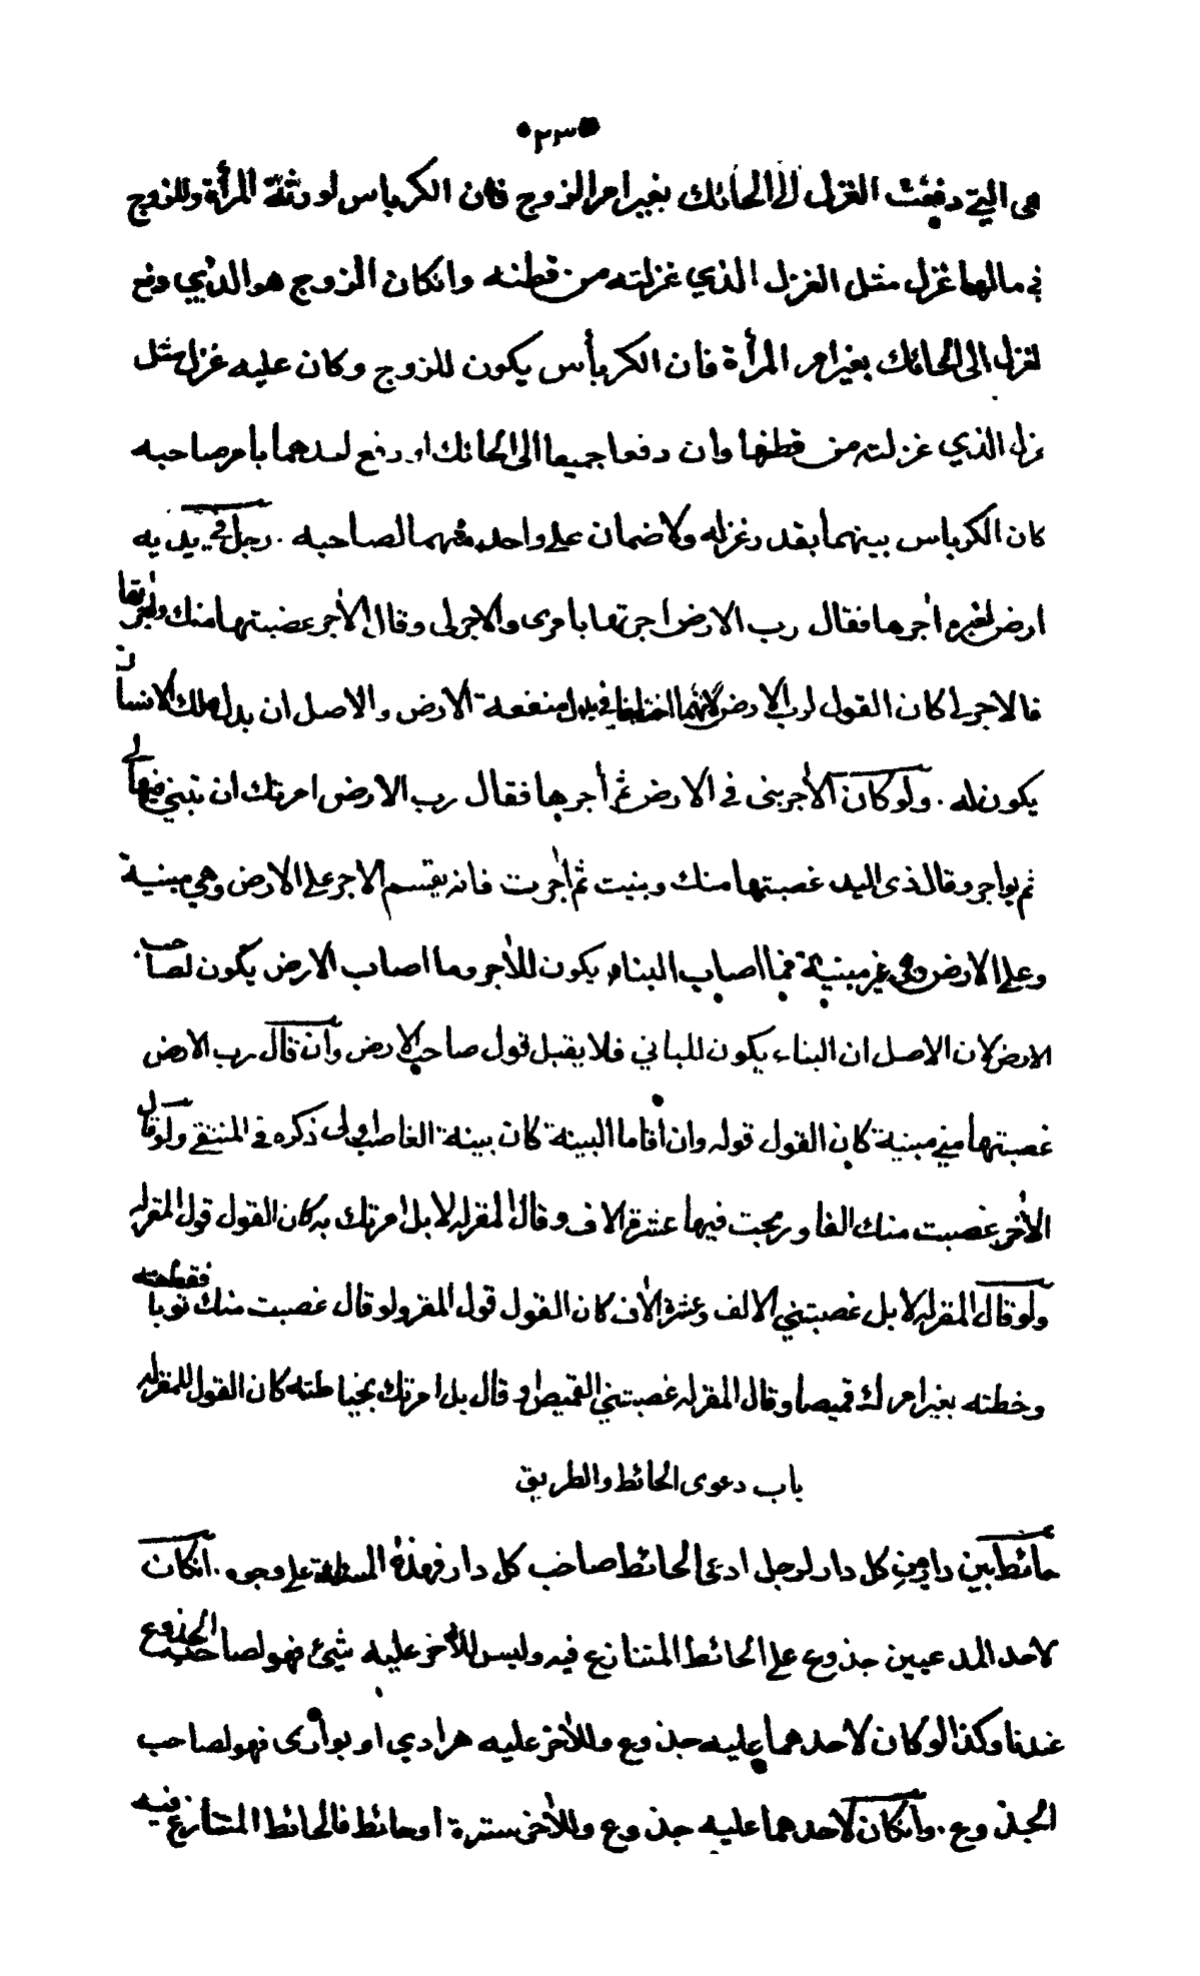 ٢٣
هى التي دفعت الغزل الى الحائك بغير امر الزوج فان الكرباس لورثة المرأة وللزوج
في مالها غزل مثل الغزل الذي غزلته من قطنه وانكان الزوج هو الذي دفع
لغزل الى الحائك بغير امر المرأة فان الكرباس يكون للزوج وكان عليه غزل مثل
غزل الذي غزلته من قطنها وان دفعا جميعا الى الحائك او دفع احدهما بامر صاحبه
كان الكرباس بينهما بقدر غزله ولا ضمان على واحد منهما لصاحبه . رجل في يديه
ارض لغيره اجرها فقال رب الارض اجرتها بامرى والاجر لى وقال الآجر غصبتها منك واجرتها
فالاجر لي كان القول لرب الارض لانهما اختلفا في بدل منفعة الارض والاصل ان بدل ملك الانسان
يكون له . ولو كان الآجر بنى في الارض ثم أجرها فقال رب الارض امرتك ان تبني فيها لي
ثم يواجر وقال ذى اليد غصبتها منك وبنيت ثم اجرت فانه يقسم الاجر على الارض وهي مبنية
وعلى الارض وهى غير مبنية فما اصاب البناء يكون للآجر وما اصاب الارض يكون لصاحب
الارض لان الاصل ان البناء يكون للباني فلا يقبل قول صاحب الارض وان قال رب الارض
غصبتها مني مبنية كان القول قوله وان اقاما البينة كان بينة الغاصب اولى ذكره في المنتقى ولو قال
الآخر غصبت منك الفا وربحت فيها عشرة الاف وقال المقر له لا بل امرتك به كان القول قول المقر له
ولو قال المقر له لا بل غصبتني الالف وعشرة الاف كان القول قول المقر ولو قال غصبت منك ثوبا فقطعته
وخطته بغير امرك قميصا وقال المقر له غصبتني القميص او قال بل امرتك بخياطته كان القول للمقر له
باب دعوى الحائط والطريق
حائط بين دارين كل دار لرجل ادعى الحائط صاحب كل دار فهذه المسئلة على وجوه . انكان
لاحد المدعيين جذوع على الحائط المتنازع فيه وليس للآخر عليه شيئ فهو لصاحب الجذوع
عندنا وكذا لو كان لاحدهما عليه جذوع وللآخر عليه هرادي او بوارى فهو لصاحب
الجذوع . وانكان لاحدهما عليه جذوع وللآخر سترة او حائط فالحائط المتنازع فيه